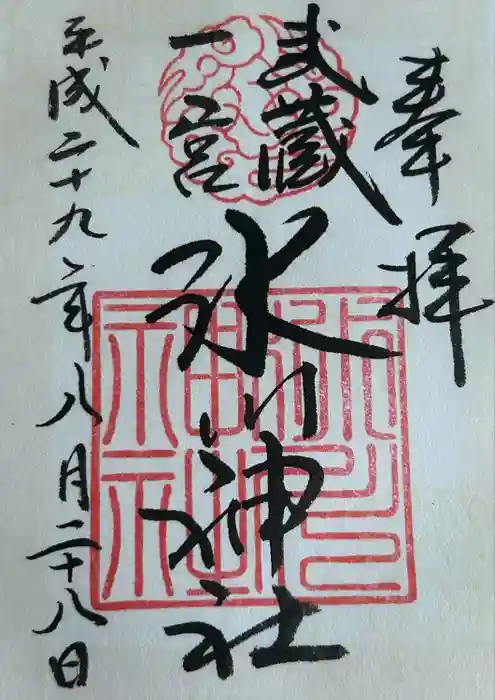 奉拝
武蔵
一宮
氷川神社
平成二十九年八月二十八日
氷川神社